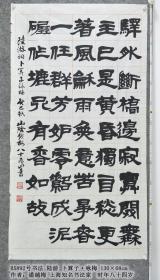 驛外斷橋邊寂寞開無
主已是黃昏獨自愁更
著風和雨無意苦爭春
一任群芳妒零落成泥
碾作塵只有香如故
陸游詞卜算子詠梅
85892号书法 陆游 卜算子·咏梅 130×68cm
作者: 上海知名书法家 时年八十四岁